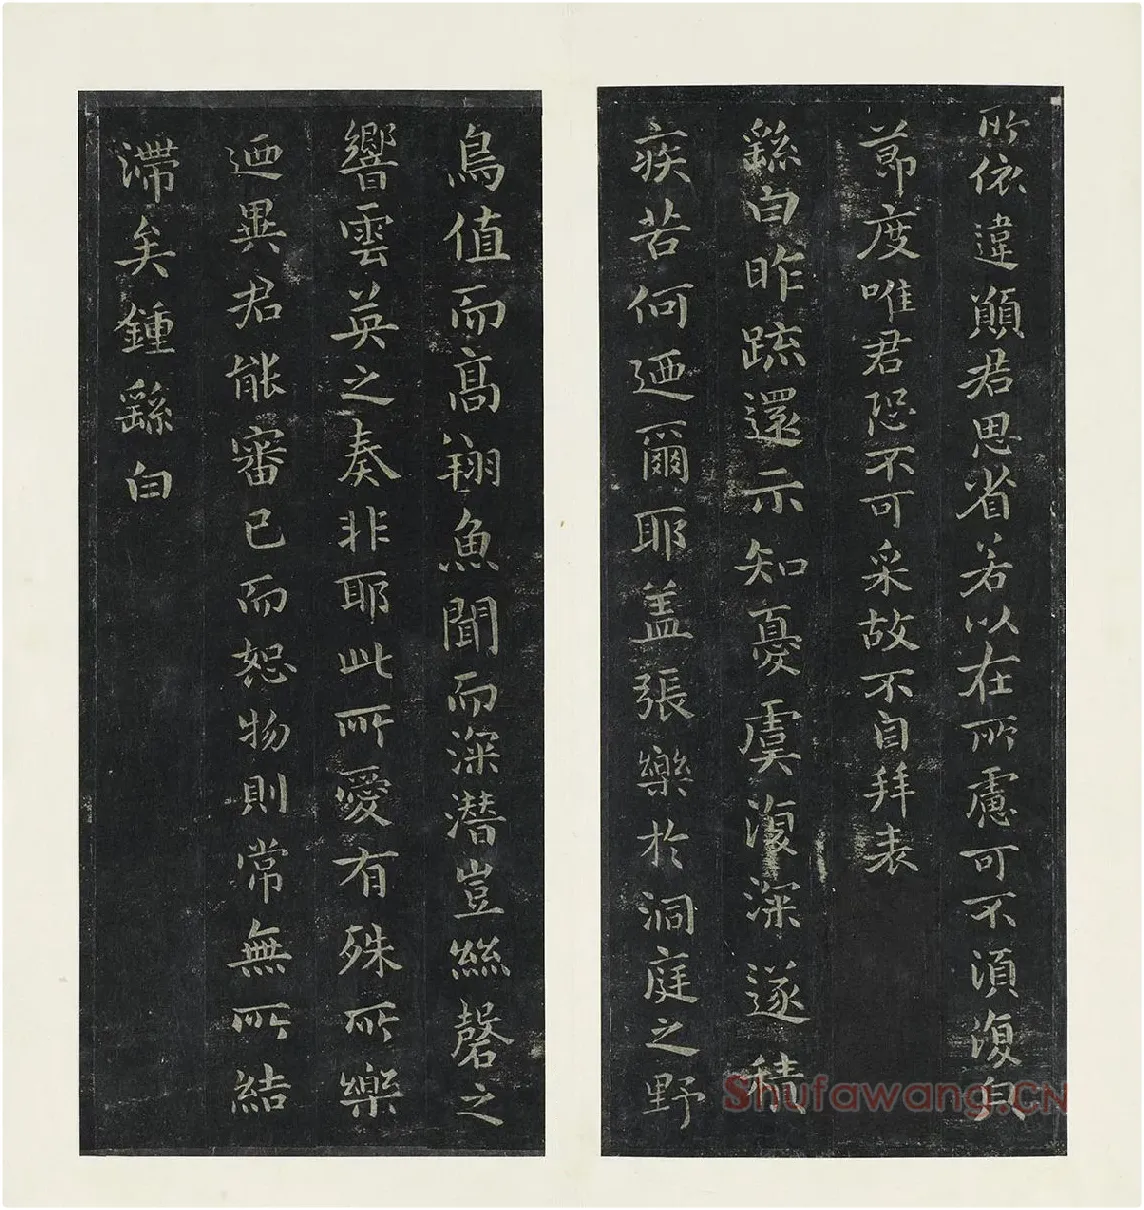 所依違願君思省若以在所慮可不須復白
節度唯君恐不可采故不自拜表
繇白昨疏還示知憂虞復深遂積
疾苦何迺爾耶蓋張樂於洞庭之野
鳥值而高翔魚聞而深潛豈絲磬之
響雲英之奏非耶此所愛有殊所樂
迺異君能審已而恕物則常無所結
滯矣鍾繇白
Shufawang.CN